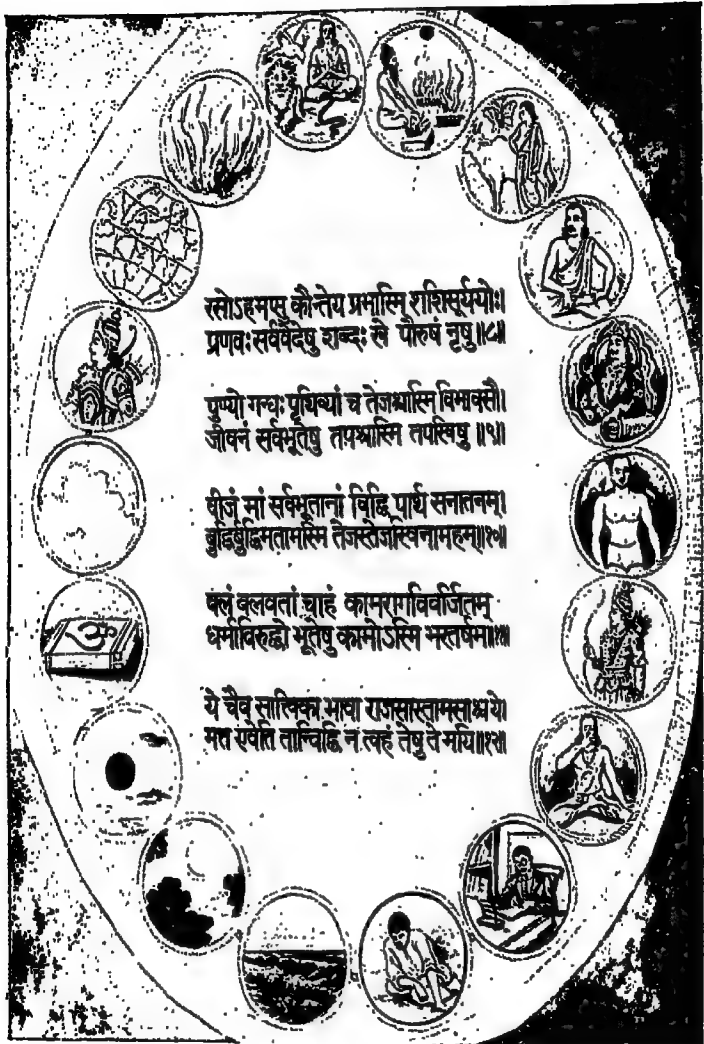 रसोऽहमप्सु कौन्तेय प्रभास्मि शशिसूर्ययोः।
प्रणवः सर्ववेदेषु शब्दः खे पौरुषं नृषु॥८॥
पुण्यो गन्धः पृथिव्यां च तेजश्चास्मि विभावसौ।
जीवनं सर्वभूतेषु तपश्चास्मि तपस्विषु॥९॥
बीजं मां सर्वभूतानां विद्धि पार्थ सनातनम्।
बुद्धिर्बुद्धिमतामस्मि तेजस्तेजस्विनामहम्॥१०॥
बलं बलवतां चाहं कामरागविवर्जितम्
धर्माविरुद्धो भूतेषु कामोऽस्मि भरतर्षभ॥११॥
ये चैव सात्त्विका भावा राजसास्तामसाश्च ये।
मत्त एवेति तान्विद्धि न त्वहं तेषु ते मयि॥१२॥
ॐ